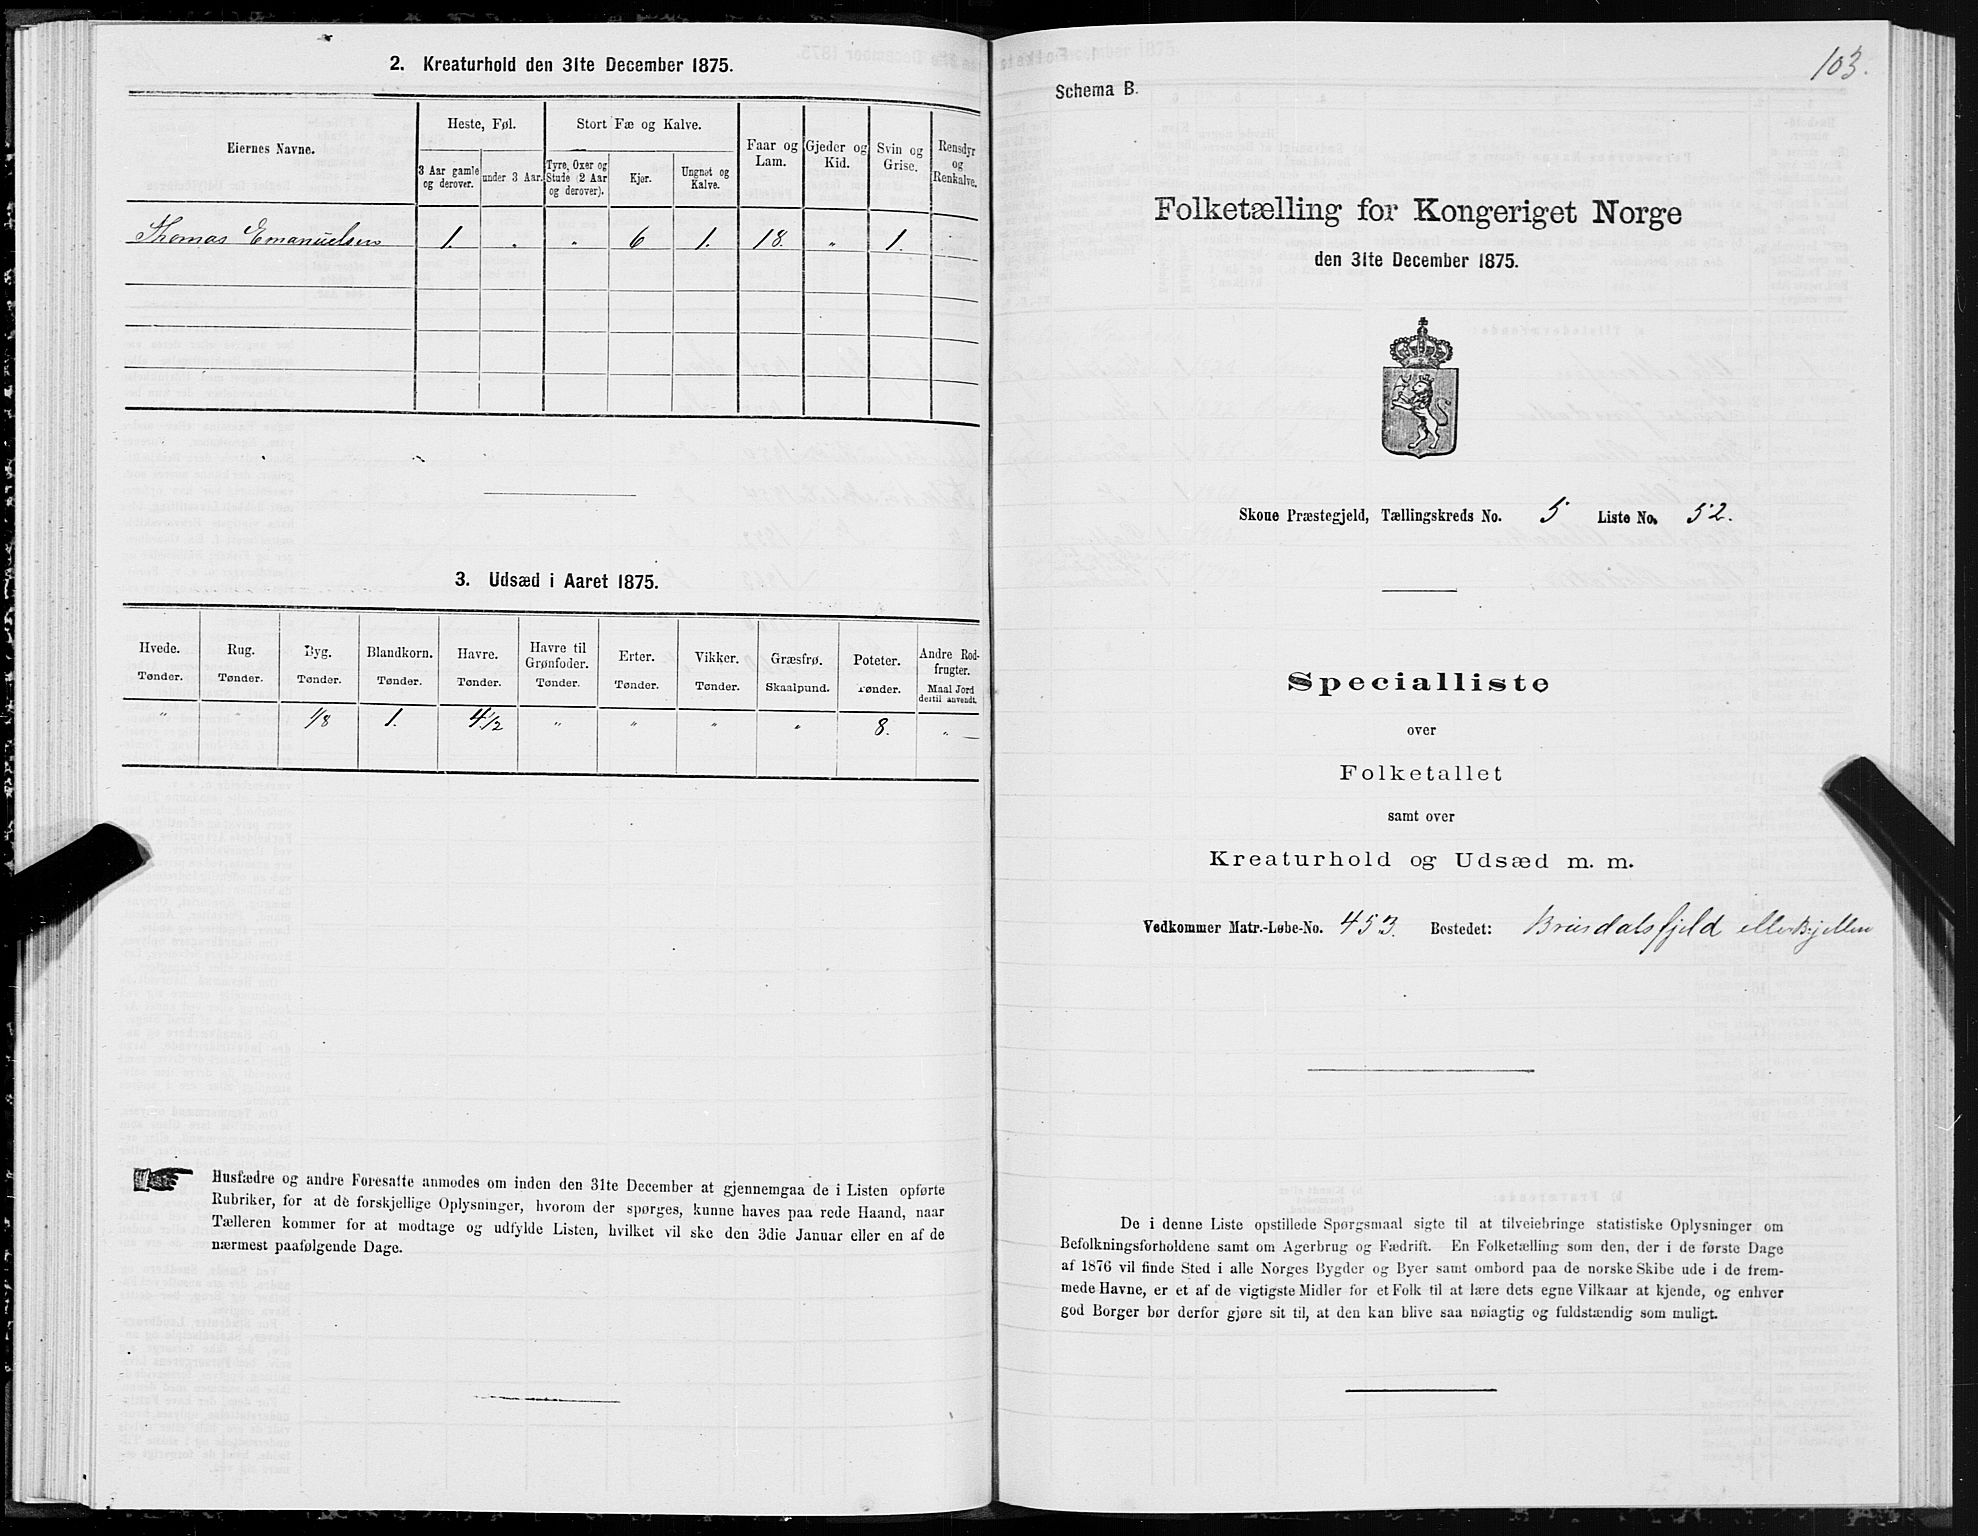 2. Kreaturhold den 31te December 1875.
Eiernes Navne.
Heste, Føl.
Stort Fæ og Kalve.
Faar og Lam.
Gjeder og Kid.
Svin og Grise.
Rensdyr og Renkalve.
3 Aar gamle og derover.
under 3 Aar.
Tyre, Oxer og Stude (2 Aar og derover).
Kjør.
Ungnøt og Kalve.
Thomas Emanuelsen 1. " " 6 1. 18. " 1. "
3. Udsæd i Aaret 1875.
Hvede. Rug. Byg. Blandkorn. Havre. Havre til Grønfoder. Erter. Vikker. Græsfrø. Poteter. Andre Rodfrugter.
Tønder. Tønder. Tønder. Tønder. Tønder. Tønder. Tønder. Tønder. Skaalpund. Tønder. Maal Jord dertil anvendt.
" " 1/8 1. 4 1/2 " " " " 8. " —
Husfædre og andre Foresatte anmodes om inden den 31te December at gjennemgaa de i Listen opførte
Rubriker, for at dè forskjellige Oplysninger, hvorom der spørges, kunne haves paa rede Haand, naar
Tælleren kommer for at modtage og udfylde Listen, hvilket vil ske den 3die Januar eller en af de
nærmest paafølgende Dage.
103.
Schema B.
Folketælling for Kongeriget Norge
den 31te December 1875.
Skoue Præstegjeld, Tællingskreds No. 5 Liste No. 52.
Specialliste
over
Folketallet
samt over
Kreaturhold og Udsæd m. m.
Vedkommer Matr.-Løbe-No. 453. Bostedet: Brusdalsfjeld eller Bjellen
De i denne Liste opstillede Spørgsmaal sigte til at tilveiebringe statistiske Oplysninger om
Befolkningsforholdene samt om Agerbrug og Fædrift. En Folketælling som den, der i de første Dage
af 1876 vil finde Sted i alle Norges Bygder og Byer samt ombord paa de norske Skibe ude i de frem-
mede Havne, er et af de vigtigste Midler for et Folk til at lære dets egne Vilkaar at kjende, og enhver
god Borger bør derfor gjøre sit til, at den kan blive saa nøiagtig og fuldstændig som muligt.